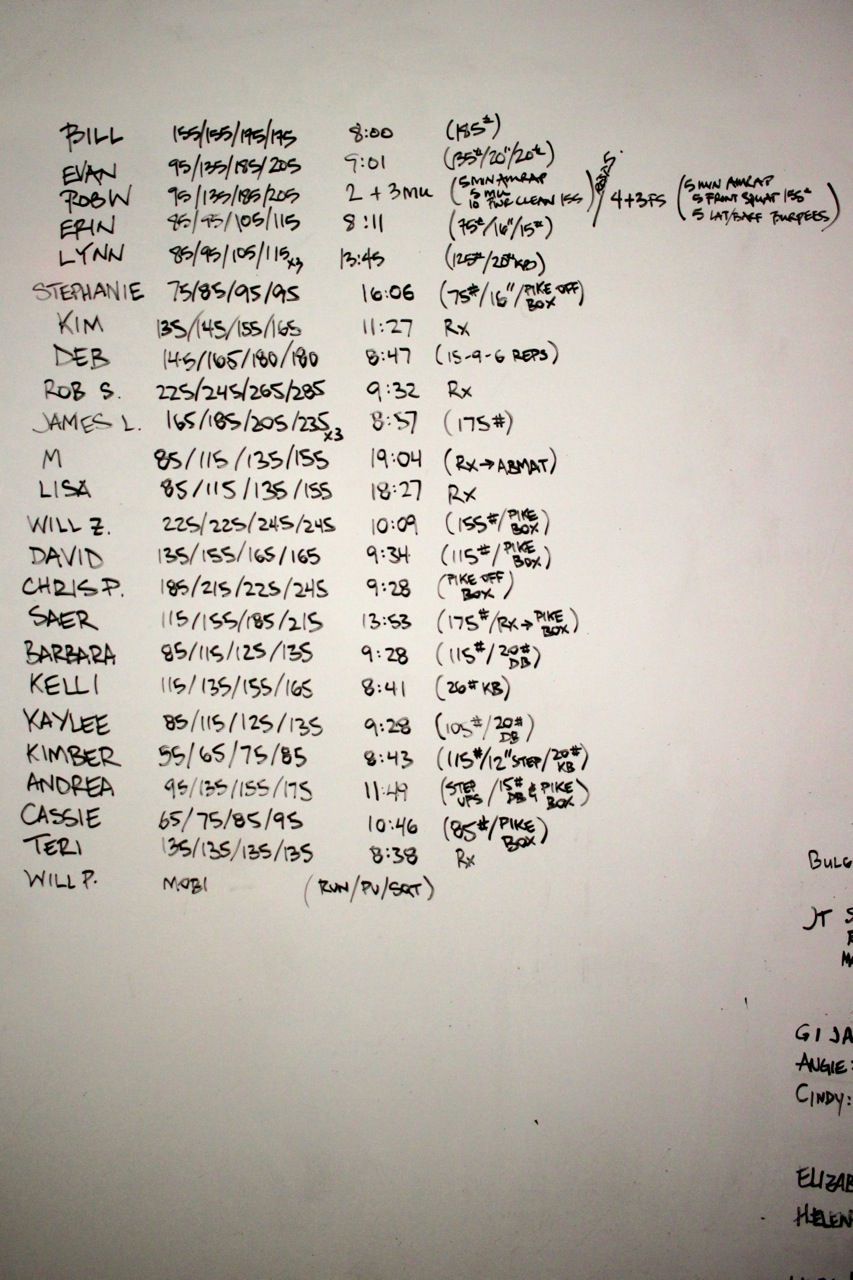 BILL 155/155/195/195 8:00 (185#)
EVAN 95/135/185/205 9:01 (135#/20"/20#)
ROB W 95/135/185/205 2 + 3 MU (5 MIN AMRAP 5 MU 10 PWR CLEAN 155) / 4+3FS (5 MIN AMRAP 5 FRONT SQUAT 155# 5 LAT/BARF BURPEES)
ERIN 85/95/105/115 8:11 (75#/16"/15#)
LYNN 85/95/105/115x3 13:45 (125#/20#KB)
STEPHANIE 75/85/95/95 16:06 (75#/16"/PIKE OFF BOX)
KIM 135/145/155/165 11:27 Rx
DEB 145/165/180/180 8:47 (15-9-6 REPS)
ROB S. 225/245/265/285 9:32 Rx
JAMES L. 165/185/205/235x3 8:57 (175#)
M 85/115/135/155 19:04 (Rx→ABMAT)
LISA 85/115/135/155 18:27 Rx
WILL Z. 225/225/245/245 10:09 (155#/PIKE BOX)
DAVID 135/155/165/165 9:34 (115#/PIKE BOX)
CHRIS P. 185/215/225/245 9:28 (PIKE OFF BOX)
SAER 115/155/185/215 13:53 (175#/Rx→PIKE BOX)
BARBARA 85/115/125/135 9:28 (115#/20# DB)
KELLI 115/135/155/165 8:41 (26#KB)
KAYLEE 85/115/125/135 9:28 (105#/20# DB)
KIMBER 55/65/75/85 8:43 (115#/12" STEP/20# KB)
ANDREA 95/135/155/175 11:49 (STEP UPS/15# DB & PIKE BOX)
CASSIE 65/75/85/95 10:46 (85#/PIKE BOX)
TERI 135/135/135/135 8:38 Rx
WILL P. MOBI (RUN/PU/SQT)
BULG
JT S
GI JA
ANGIE:
CINDY:
ELIZAB
HELEN